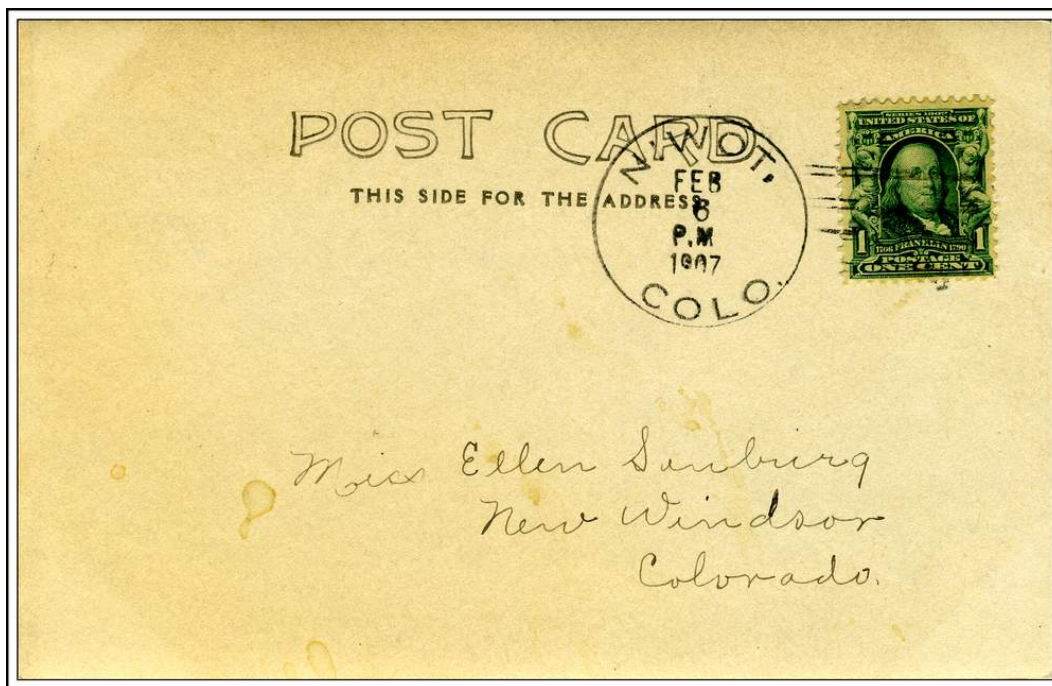 POST CARD
THIS SIDE FOR THE ADDRESS
NIWOT,
FEB
6
P.M
1907
COLO.
SERIES 1902
UNITED STATES OF
AMERICA
1 1
1706 FRANKLIN 1790
POSTAGE
ONE CENT
Miss Ellen Sunburg
New Windsor
Colorado.